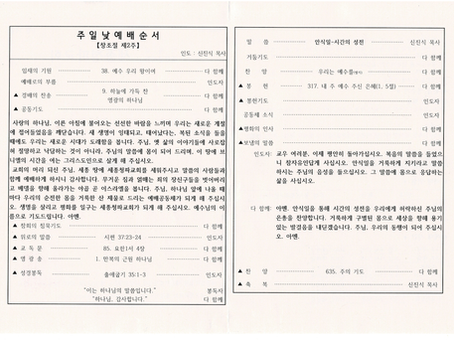 주 일 낮 예 배 순 서
【창조절 제2주】
인도 : 신진식 목사
임재의 기원 38. 예수 우리 왕이여 다 함께
예배로의 부름 인도자
▲ 경배의 찬송 9. 하늘에 가득 찬 다 함께
영광의 하나님
▲ 공동기도 다 함께
사랑의 하나님, 이른 아침에 불어오는 선선한 바람을 느끼며 우리는 새로운 계절
에 접어들었음을 깨닫습니다. 새 생명이 잉태되고, 태어났다는, 복된 소식을 들을
때에도 우리는 새로운 시대가 도래함을 봅니다. 주님, 옛 삶의 이야기들에 사로잡
혀 절망하고 낙담하는 것이 아니라, 주님의 말씀에 붙이 되어 드리며, 이 땅에 보
냄의 시간을 여는 그리스도인으로 살게 해 주십시오.
교회의 머리 되신 주님, 세종 땅에 세종청파교회를 세워주시고 말씀의 사람들과
함께 예배하게 하시니 감사합니다. 무거운 짐과 얽매는 죄의 장신구들을 벗어버리
고 베델을 향해 올라가는 야곱 곧 이스라엘을 봅니다. 주님, 하나님 앞에 나올 때
마다 우리의 순전한 몸을 거룩한 산 제물로 드리는 예배공동체가 되게 해 주십시
오. 생명을 살리고 평화를 일구는 세종청파교회가 되게 해 주십시오. 예수님의 이
름으로 기도드립니다. 아멘.
▲ 참회의 침묵기도 다 함께
▲ 위로의 말씀 시편 37:23-24 인도자
▲ 교 독 문 85. 요한1서 4장 다 함께
▲ 영 광 송 1. 만복의 근원 하나님 다 함께
▲ 성경봉독 출애굽기 35:1-3 인도자
"이는 하나님의 말씀입니다." 봉독자
"하나님, 감사합니다." 다 함께
말 씀 안식일-시간의 성전 신진식 목사
거둠기도 다 함께
찬 양 우리는 예수를 다 함께
▲ 봉 헌 317. 내 주 예수 주신 은혜(1, 5절) 다 함께
▲ 봉헌기도 인도자
공동체 소식 인도자
▲ 평화의 인사 다 함께
▲ 보냄의 말씀 다 함께
인도자: 교우 여러분, 이제 평안히 돌아가십시오. 복음의 말씀을 들었으
니 참자유인답게 사십시오. 안식일을 거룩하게 지키라고 말씀
하시는 주님의 음성을 들으십시오. 그 말씀에 몸으로 응답하는
삶을 사십시오.
다 함께: 아멘. 안식일을 통해 시간의 성전을 우리에게 허락하신 주님의
은총을 찬양합니다. 거룩하게 구별된 몸으로 세상을 향해 용기
있는 발걸음을 내딛겠습니다. 주님, 우리의 동행이 되어 주십시
오. 아멘.
▲ 찬 양 635. 주의 기도 다 함께
▲ 축 복 신진식 목사